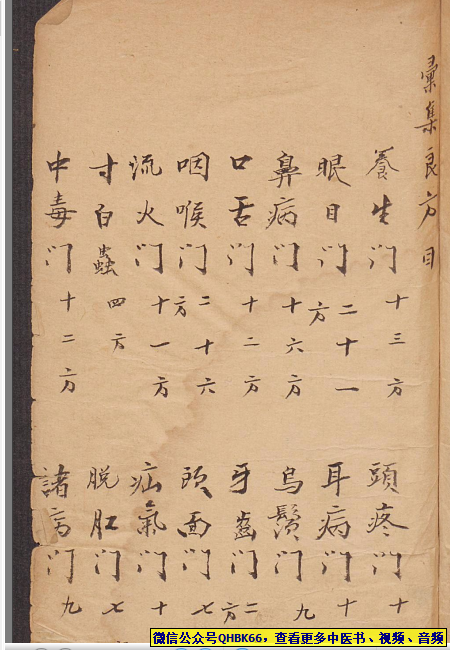 彙集良方目
養生门 十三方 頭疼门 十
眼目门 二十一方 耳病门 十
鼻病门 十六方 烏鬚门 九
口舌门 十二方 牙齒门 二方
咽喉门 二十六方 頭面门 七
流火门 十一方 疝氣门 十
寸白蟲 四方 脱肛门 七
中毒门 十二方 諸门 九
微信公众号QHBK66，查看更多中医书、视频、音频